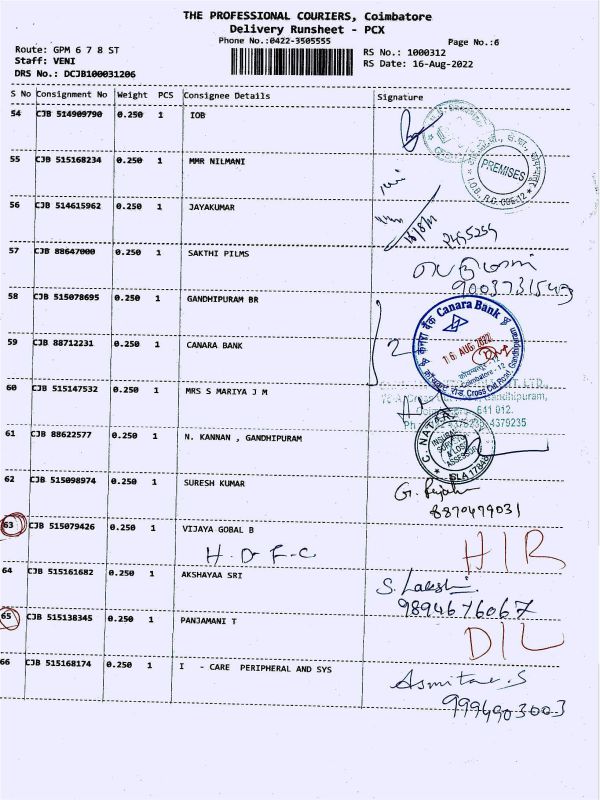 THE PROFESSIONAL COURIERS, Coimbatore
Delivery Runsheet - PCX
Phone No.:0422-3505555
Page No.:6
Route: GPM 6 7 8 ST
RS No.: 1000312
Staff: VENI
RS Date: 16-Aug-2022
DRS No.: DCJB100031206
S No Consignment No Weight PCS Consignee Details Signature
54 CJB 514909790 0.250 1 IOB
55 CJB 515168234 0.250 1 MMR NILMANI
PREMISES
I.O.B., R.C. 695-12
56 CJB 514615962 0.250 1 JAYAKUMAR
16/8/22
57 CJB 88647000 0.250 1 SAKTHI PILMS
9003731543
58 CJB 515078695 0.250 1 GANDHIPURAM BR
केनरा बैंक Canara Bank
59 CJB 88712231 0.250 1 CANARA BANK
2
16 AUG 2022
कोयम्बतूर - 12
Coimbatore - 12
Cross Cut Road, Gandhipuram
60 CJB 515147532 0.250 1 MRS S MARIYA J M
LTD.,
Cross Cut Road, Gandhipuram,
641 012.
4379235
61 CJB 88622577 0.250 1 N. KANNAN , GANDHIPURAM
C. NATA
INSURANCE
SURVEYOR
& LOSS
ASSESSOR
62 CJB 515098974 0.250 1 SURESH KUMAR
8870479031
63 CJB 515079426 0.250 1 VIJAYA GOBAL B
H D F C
HIR
64 CJB 515161682 0.250 1 AKSHAYAA SRI
S. Lakshi
9894676067
65 CJB 515138345 0.250 1 PANJAMANI T
DIL
66 CJB 515168174 0.250 1 I - CARE PERIPHERAL AND SYS
Asmitav.S
9994903003